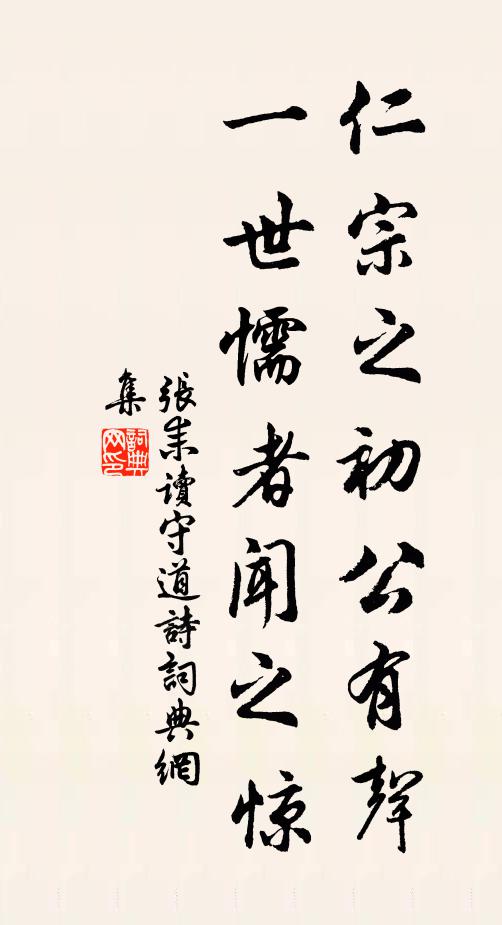 仁宗之初公有聲
一世懦者闻之惊
張耒讀守道詩詞典網
集
詞典
网印